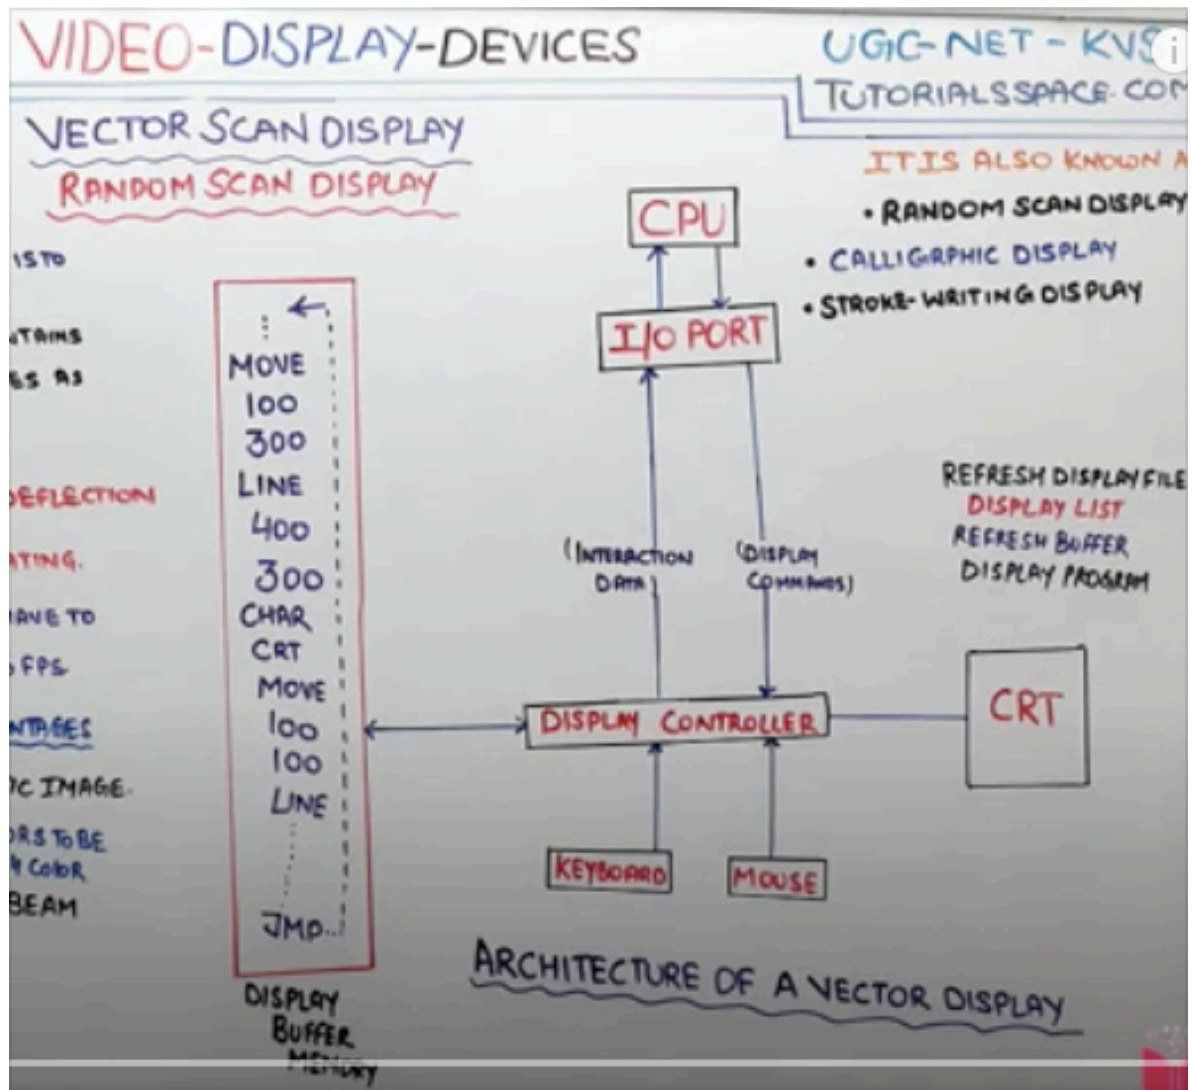 VIDEO-DISPLAY-DEVICES
UGC-NET - KVS
TUTORIALSSPACE.COM
VECTOR SCAN DISPLAY
RANDOM SCAN DISPLAY
IT IS ALSO KNOWN A
• RANDOM SCAN DISPLAY
• CALLIGRPHIC DISPLAY
• STROKE-WRITING DISPLAY
IS TO
NTAINS
ES AS
DEFLECTION
ATING.
HAVE TO
FPS
NTAGES
IC IMAGE.
ORS TO BE
COLOR
BEAM
MOVE
100
300
LINE
400
300
CHAR
CRT
MOVE
100
100
LINE
JMP
DISPLAY
BUFFER
MEMORY
CPU
I/O PORT
(INTERACTION
DATA)
(DISPLAY
COMMANDS)
DISPLAY CONTROLLER
KEYBOARD
MOUSE
CRT
REFRESH DISPLAY FILE
DISPLAY LIST
REFRESH BUFFER
DISPLAY PROGRAM
ARCHITECTURE OF A VECTOR DISPLAY